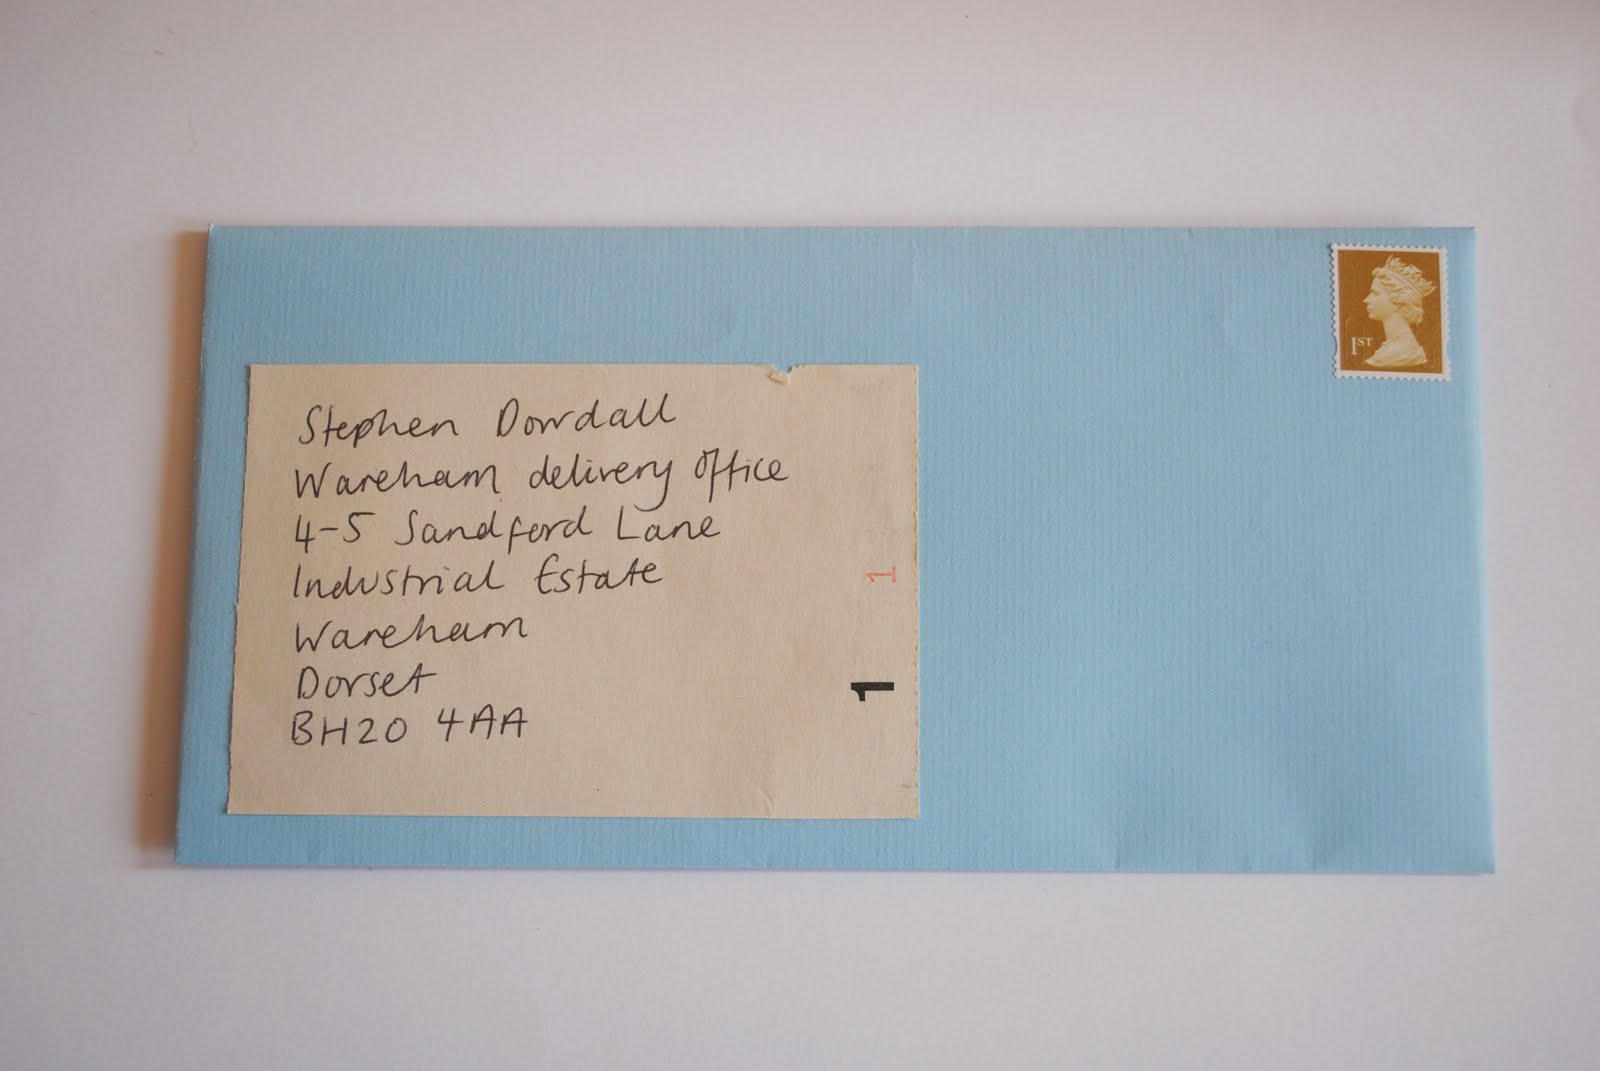 1ST
Stephen Dowdall
Wareham delivery office
4-5 Sandford Lane
Industrial Estate
Wareham
Dorset
BH20 4AA
1
1